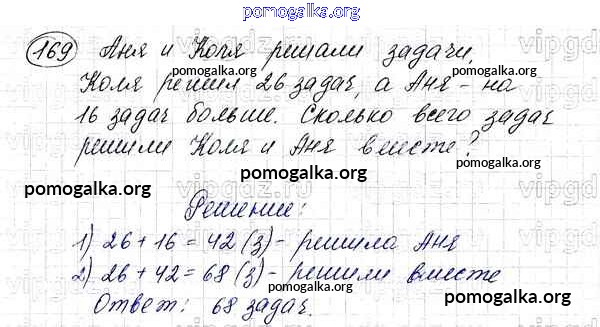 pomogalka.org
169 Аня и Коля решали задачи,
Коля решил 26 задач, а Аня - на
16 задач больше. Сколько всего задач
решили Коля и Аня вместе?
pomogalka.org pomogalka.org
Решение:
1) 26 + 16 = 42 (з) - решила Аня
2) 26 + 42 = 68 (з) - решили вместе
Ответ: 68 задач.
pomogalka.org pomogalka.org